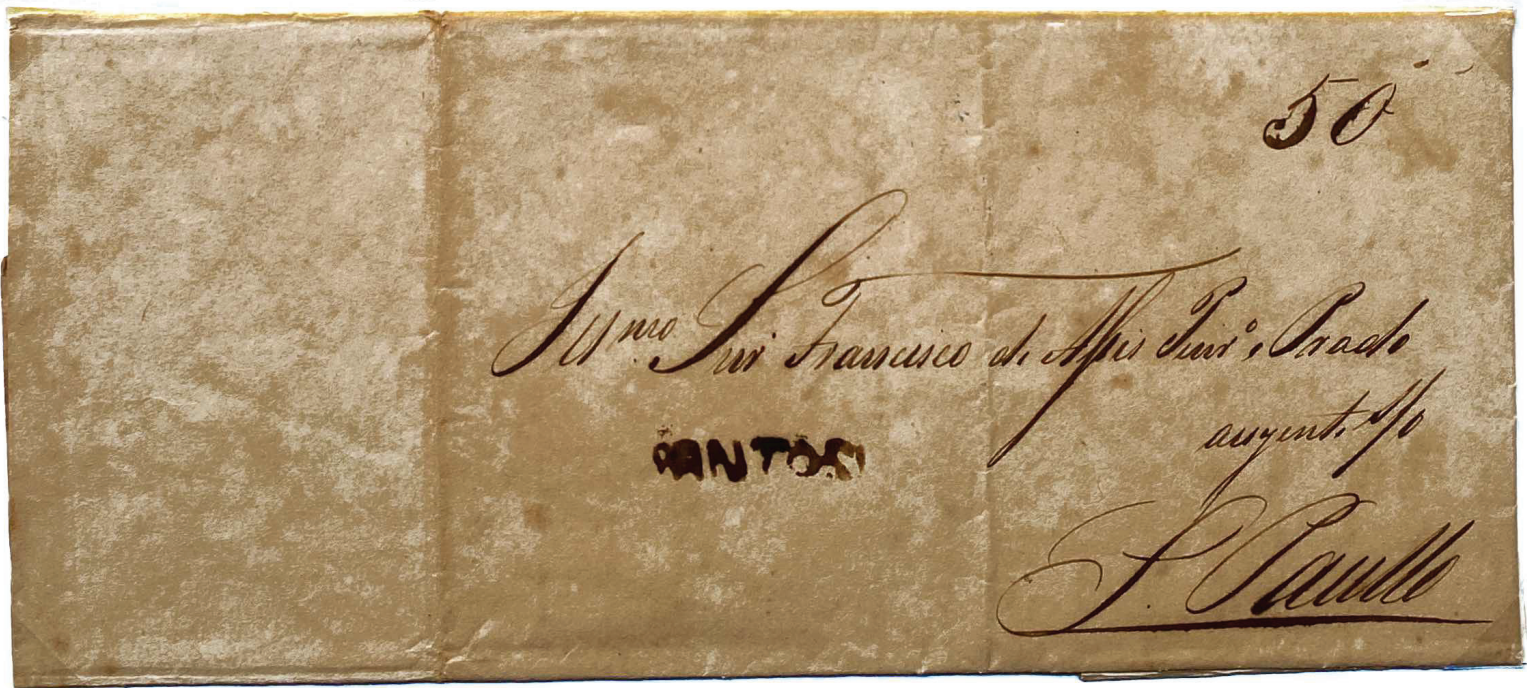 50
Illmo Snr Francisco de Assis Pinrº e Prado
auzente S/o
SANTOS
S. Paullo